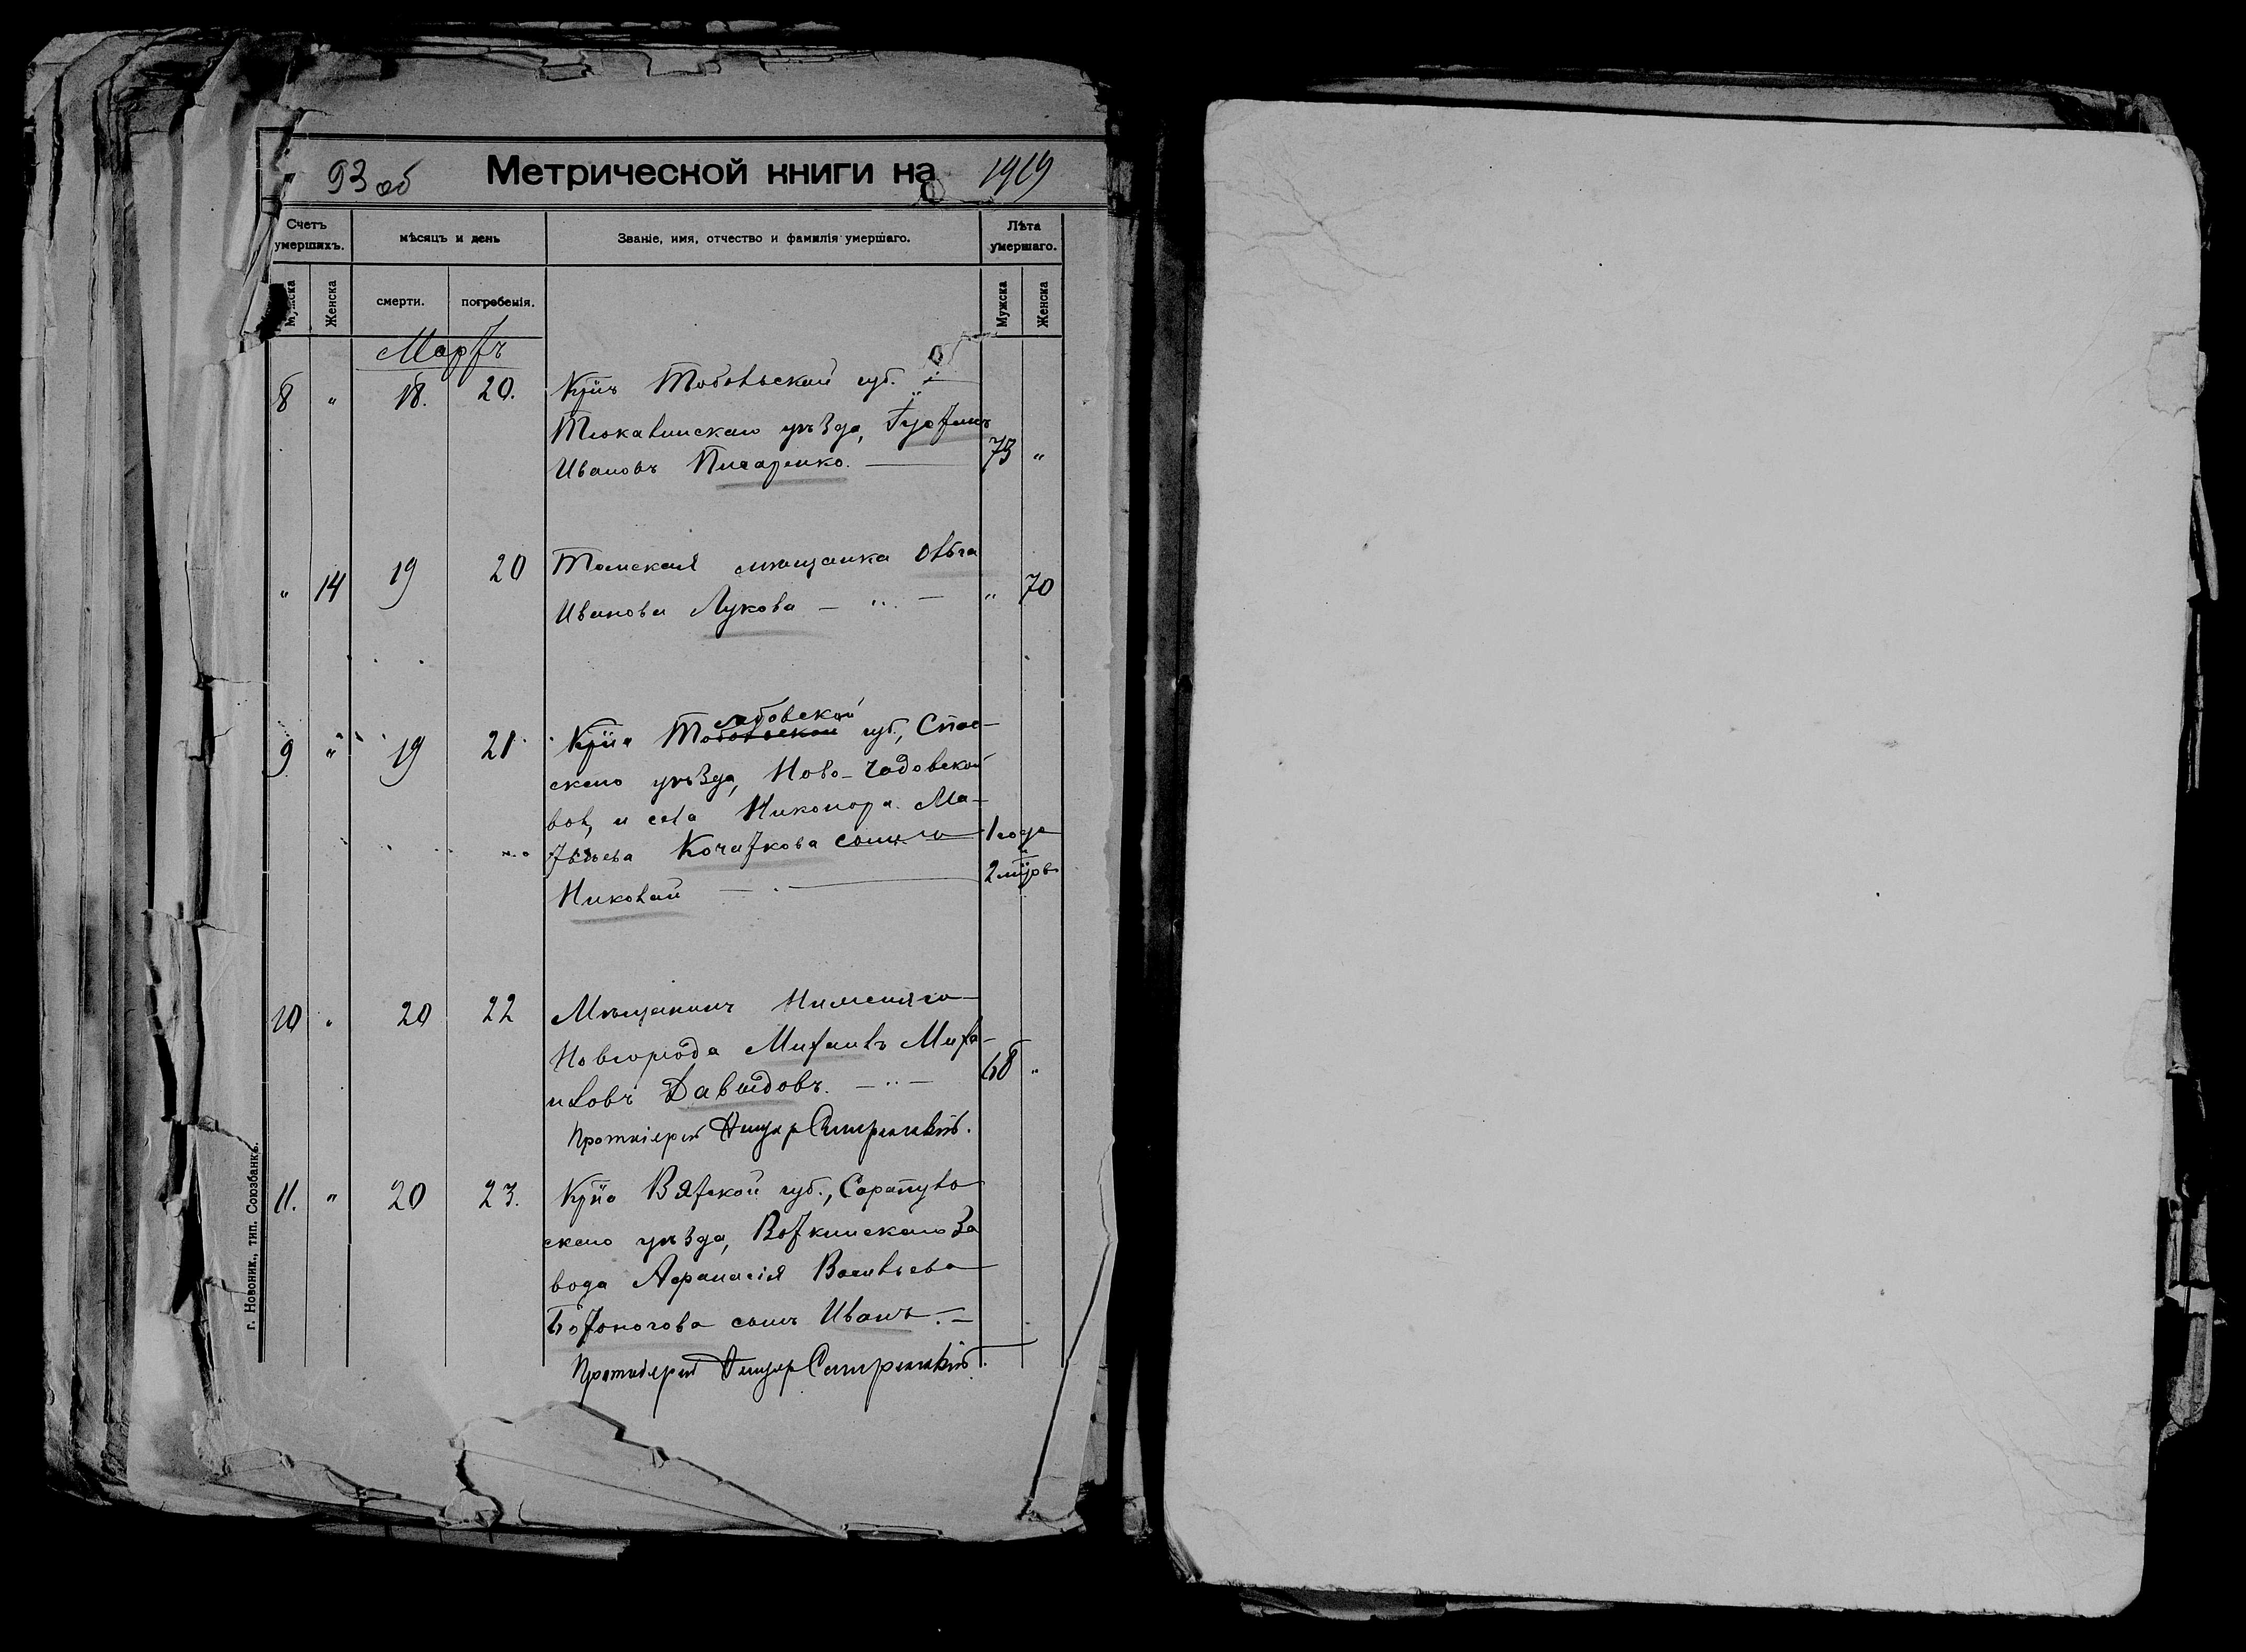 93 об Метрической книги на 1919
Счетъ умершихъ. мѣсяцъ и день Званіе, имя, отчество и фамилія умершаго. Лѣта умершаго.
Мужска Женска смерти. погребенія. Мужска Женска
Мартъ
8 " 18. 20. Кр̃нъ Тобольской губ.
Тюкалинскаго уѣзда, Густинъ
Ивановъ Писаренко. — 73 "
" 14 19 20 Томская мѣщанка Ольга
Иванова Лукова — " — " 70
9 " 19 21 Кр̃на Тамбовской губ., Спас-
скаго уѣзда, Ново-Чадовской
вол. и села Никонора Ма-
твѣева Кочеткова сынъ 1 года
Николай — 2 мц̃овъ
10 " 20 22 Мѣщанинъ Нижняго
Новгорода Михаилъ Миха-
иловъ Давыдовъ. — " — 68 "
Протоіерей
11. " 20 23. Кр̃на Вятской губ., Сарапуль
скаго уѣзда, Воткинскаго За
вода Афанасія Васильева
Ботоногова сынъ Иванъ. —
Протоіерей
г. Новоник., тип. Союзбанкъ.